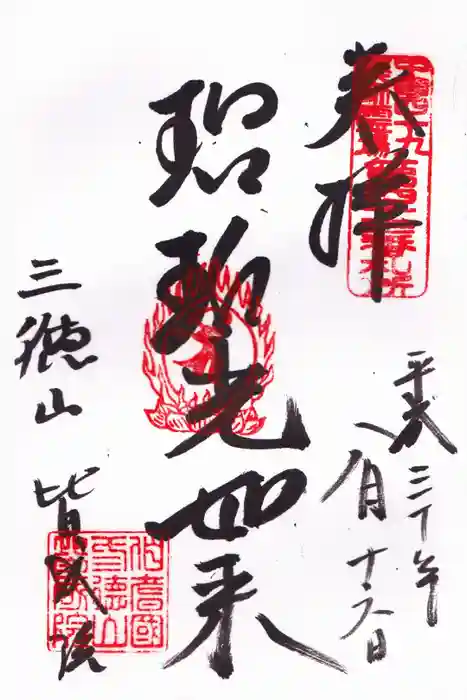 奉拝
平成三十年
八月十六日
瑠璃光如来
三徳山
皆成院
伯耆國
三德山
皆成院